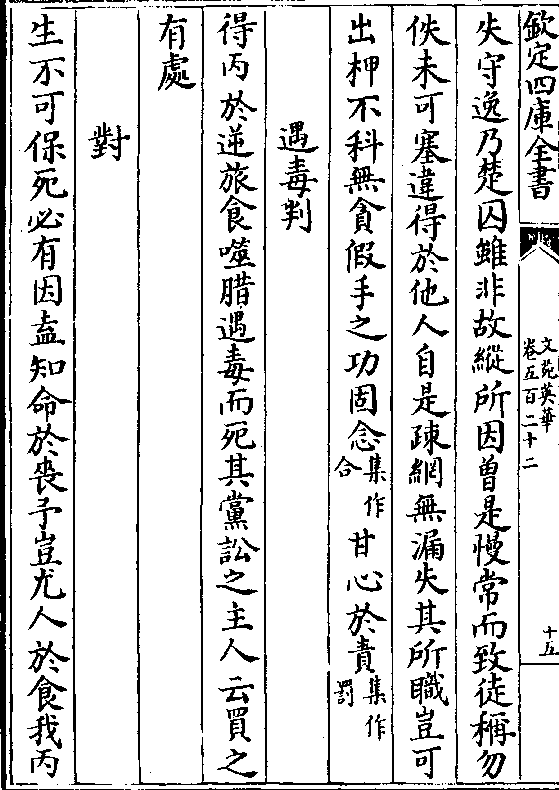 欽定四庫全書
文苑英華
卷五百二十二
十五
失守逸乃楚囚雖非故縱所因曽是慢常而致徒稱勿
佚未可塞違得於他人自是疎網無漏失其所職豈可
出柙不科無貪假手之功固念集作合甘心於責集作罰
遇毒判
得丙於逆旅食噬腊遇毒而死其黨訟之主人云買之
有處
對
生不可保死必有因盍知命於喪予豈尤人於食我丙